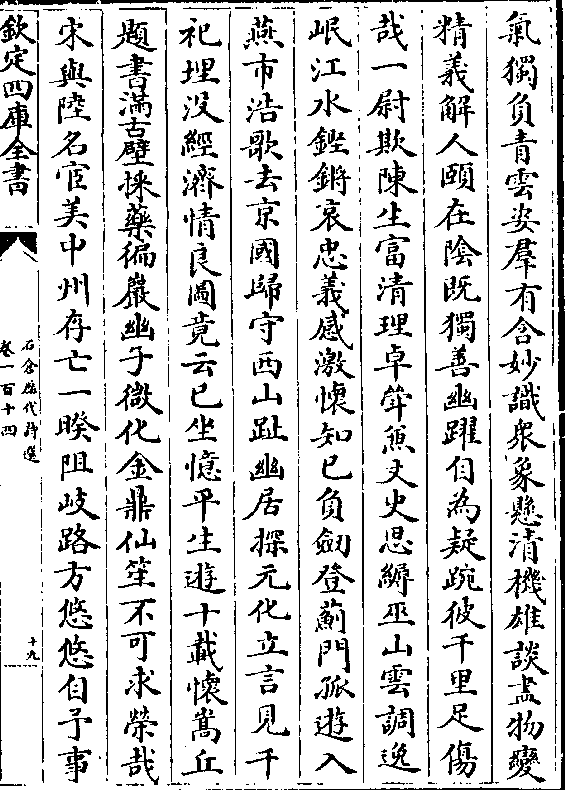 氣獨負青雲姿羣有含妙識衆象懸清機雄談盡物變
精義解人頤在陰既獨善幽躍自為疑踠彼千里足傷
哉一尉欺陳生富清理卓犖兼文史思縟巫山雲調逸
岷江水鏗鏘哀忠義感激懷知己負劒登薊門孤遊入
燕市浩歌去京國歸守西山趾幽居探元化立言見千
祀埋没經濟情良圖竟云已坐憶平生遊十載懷嵩丘
題書滿古壁採藥徧巖幽子微化金鼎仙笙不可求榮哉
宋與陸名宦美中州存亡一暌阻岐路方悠悠自予事
欽定四庫全書
石倉歴代詩選
卷一百十四
十九